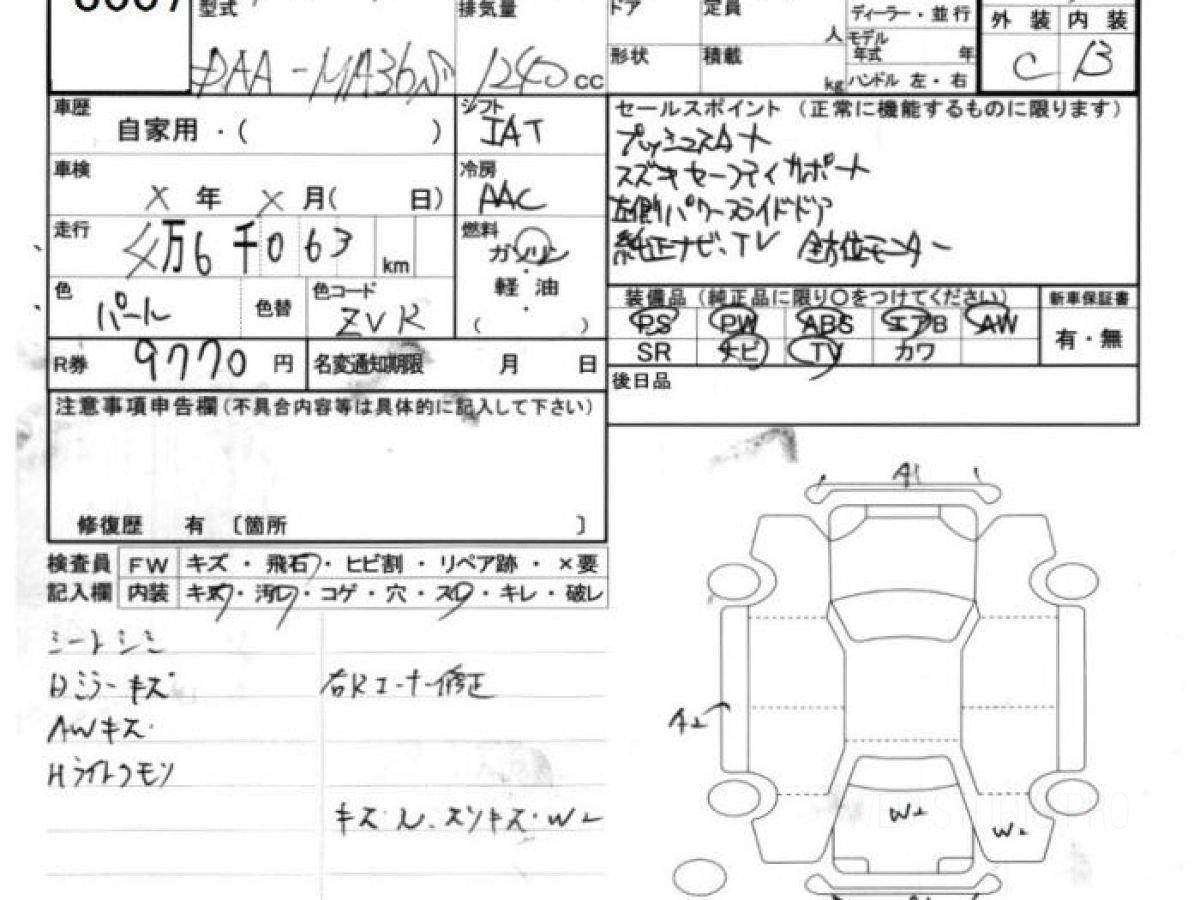 型式 排気量 ドア 定員 人 ディーラー・並行 外装 内装
DAA-MA36S 1240 CC 形状 積載 kg モデル年式 年 ハンドル 左・右 C B
車歴 自家用・( ) シフト IAT
車検 X 年 X 月( 日) 冷房 AAC
走行 4万6千063 km 燃料 ガソリン
軽油
( )
色 パール 色替 色コード ZVR
R券 9770円 名変通知期限 月 日
セールスポイント (正常に機能するものに限ります)
プッシュスタート
スズキセーフティサポート
左側パワースライドドア
純正ナビ、TV 全方位モニター
装備品(純正品に限り○をつけてください) 新車保証書
PS PW ABS エアB AW 有・無
SR ナビ TV カワ
後日品
注意事項申告欄(不具合内容等は具体的に記入して下さい)
修復歴 有 〔箇所 〕
検査員 FW キズ・飛石・ヒビ割・リペア跡・×要
記入欄 内装 キズ・汚レ・コゲ・穴・スレ・キレ・破レ
シートシミ
Dミラーキズ 右Rコーナー修正
AWキズ
Hライトクモリ
キズ・ル、スリキズ・W2
A1
A2
W2
W2